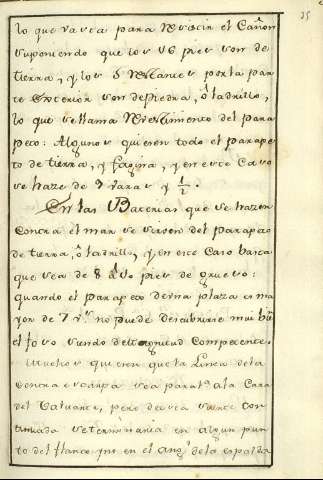 35
lo que basta para resistir el Cañon
suponiendo que los 16 pies son de
tierra, y los 5 restantes por la par
te exterior son de piedra, ô ladrillo,
lo que se llama Revestimento del para
peto: Algunos quieren todo el parape
to de tierra, y fagina, y en este Caso
se haze de 7 varas y ½.
En las Baterias que se hazen
contra el mar se sirven del parapeto
de tierra, ô ladrillo, y en ese Caso basta
que sea de 8 â 10 pies de grueso:
quando el parapeto de una plaza es ma
yor de 7 vs. no puede descubrirse mui bn.
el foso siendo de Competente.
Muchos quieren que la Linea de la
contra escarpa sea paralª. a la Cara
del Baluarte, pero de esta suerte con
tinuada se terminaria en algun pun
to del flanco y no en el angº. de la espalda